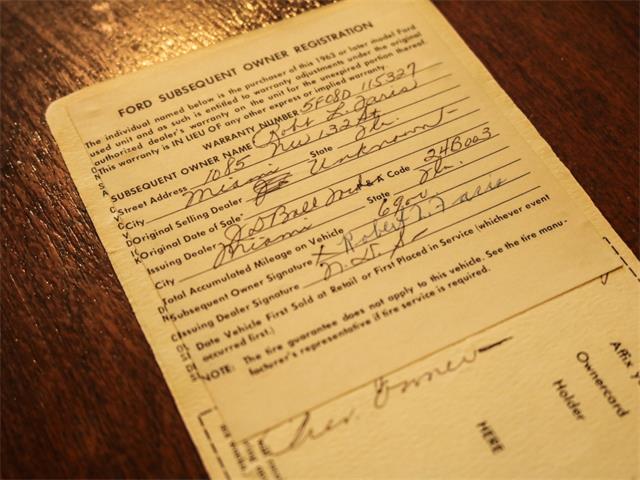 FORD SUBSEQUENT OWNER REGISTRATION
The individual named below is the purchaser of this 1963 or later model Ford
used unit and as such is entitled to warranty adjustments under the original
authorized dealer's warranty on the unit for the unexpired portion thereof.
This warranty is IN LIEU OF any other express or implied warranty.
WARRANTY NUMBER 5F08D 115327
SUBSEQUENT OWNER NAME Robt L. Faris
Street Address 1085 NW 132 St
City Miami State Fla.
Original Selling Dealer Unknown
Original Date of Sale
Issuing Dealer Code 24B003
City Miami State Fla.
Total Accumulated Mileage on Vehicle 6900
Subsequent Owner Signature X Robert L. Faris
Issuing Dealer Signature
Date Vehicle First Sold at Retail or First Placed in Service (whichever event
occurred first.)
NOTE: The tire guarantee does not apply to this vehicle. See the tire manu-
facturer's representative if tire service is required.
Owner
HERE
Holder
Ownercard
Affix